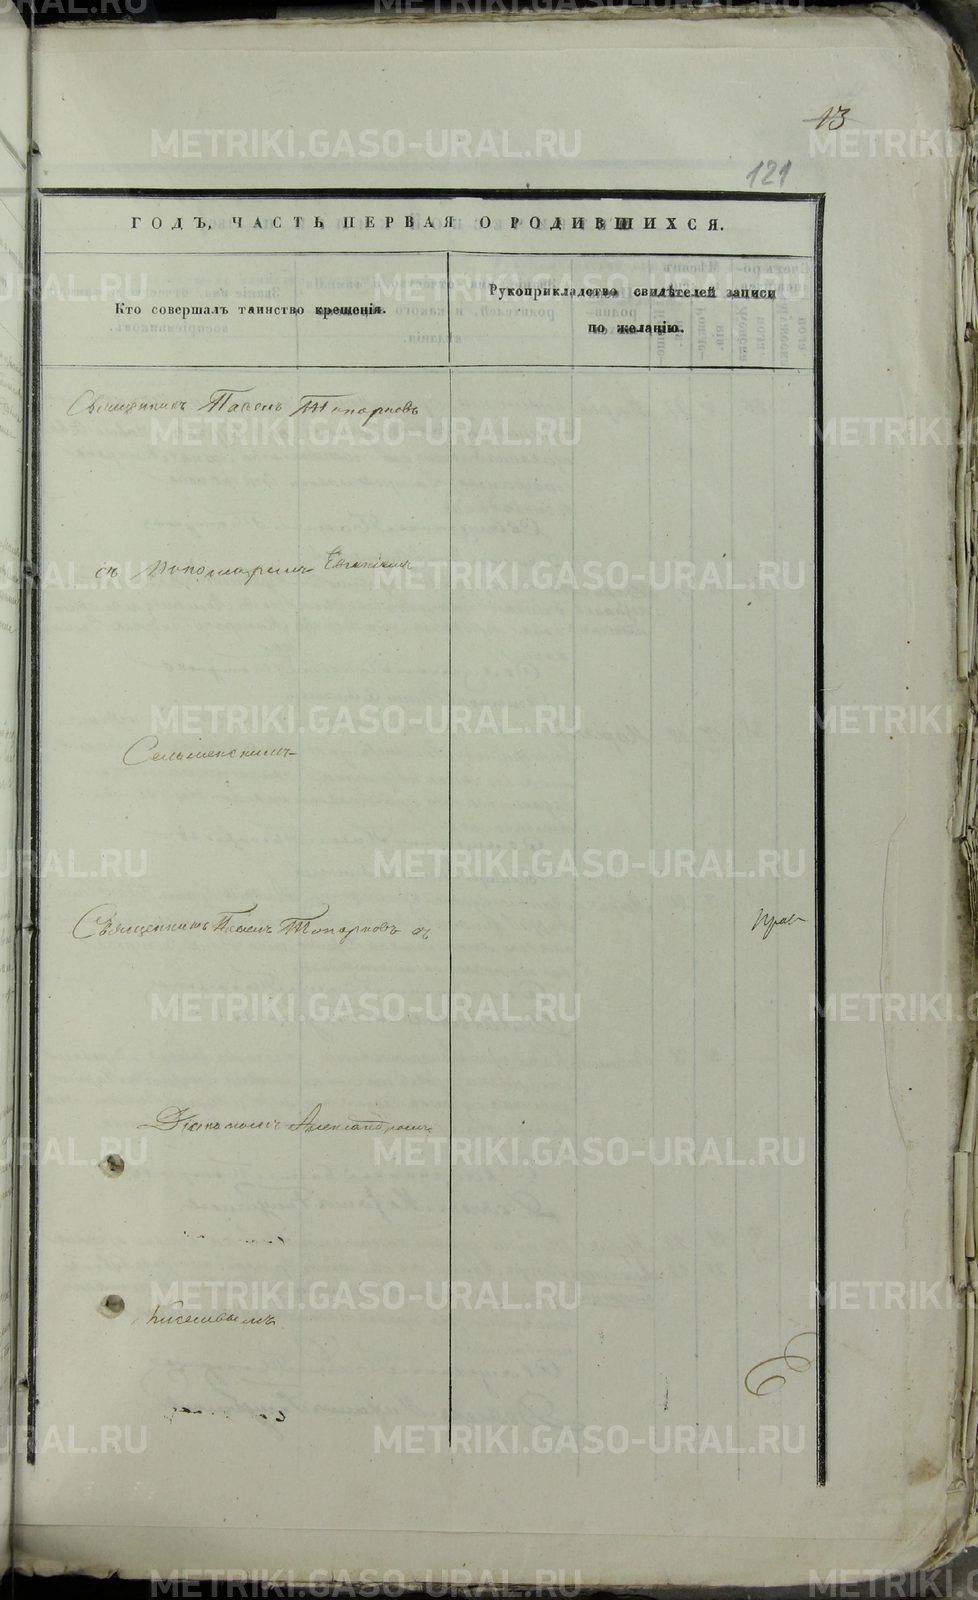 13
121
ГОДЪ, ЧАСТЬ ПЕРВАЯ О РОДИВШИХСЯ.
Кто совершалъ таинство крещенія.
Рукоприкладство свидѣтелей записи
по желанію.
Священникъ Павелъ Топорковъ
съ Пономаремъ Евгеніемъ
Сельменскимъ
Священникъ Павелъ Топорковъ съ
Діакономъ Александромъ
Киселевымъ
METRIKI.GASO-URAL.RU